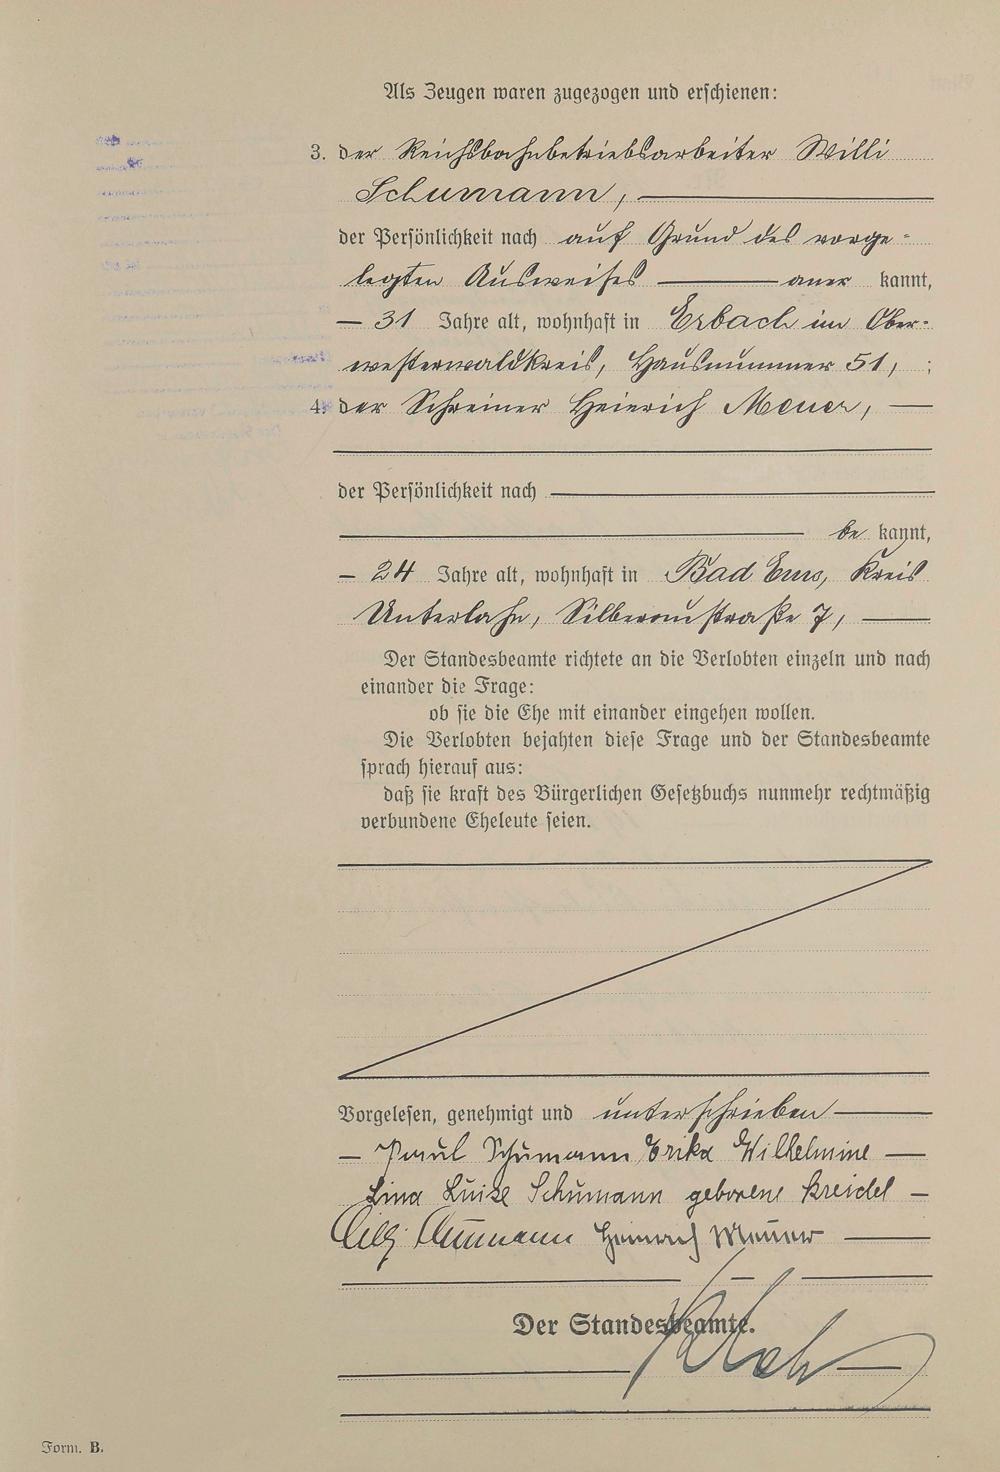 Als Zeugen waren zugezogen und erschienen:
3. der Reichsbahnbetriebsarbeiter Willi
Schumann,
der Persönlichkeit nach auf Grund des vorge-
legten Ausweises aner kannt,
31 Jahre alt, wohnhaft in Erbach im Ober-
westerwaldkreis, Hausnummer 51, ;
4. der Schreiner Heinrich Meuer,
der Persönlichkeit nach
be kannt,
24 Jahre alt, wohnhaft in Bad Ems, Kreis
Unterlahn, Silberaustraße 7,
Der Standesbeamte richtete an die Verlobten einzeln und nach
einander die Frage:
ob sie die Ehe mit einander eingehen wollen.
Die Verlobten bejahten diese Frage und der Standesbeamte
sprach hierauf aus:
daß sie kraft des Bürgerlichen Gesetzbuchs nunmehr rechtmäßig
verbundene Eheleute seien.
Vorgelesen, genehmigt und unterschrieben
Paul Schumann Erika Wilhelmine
Lina Luise Schumann geborene Kreidel
Willi Schumann Heinrich Meuer
Der Standesbeamte.
Form. B.